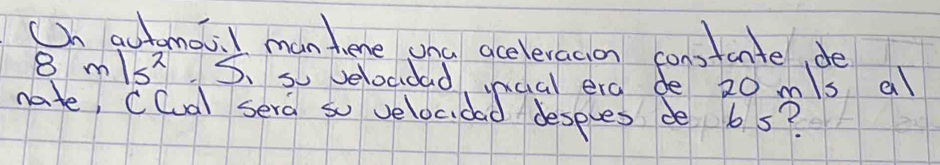 Un automóvil mantiene una aceleracion constante, de
8 m/s². Si su velocidad inicial era de 20 m/s al
nate, ¿Cual será su velocidad despues de 6 s?